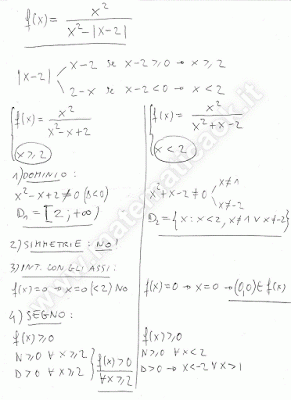 f(x) = x² / (x² - |x-2|)
|x-2| < x-2 se x-2≥0 → x≥2
2-x se x-2<0 → x<2
{ f(x) = x² / (x²-x+2)
x≥2
1) DOMINIO:
x²-x+2≠0 (Δ<0)
D₁ = [2; +∞)
{ f(x) = x² / (x²+x-2)
x<2
x²+x-2≠0 x≠1
x≠-2
D₂ = {x: x<2, x≠1 ∨ x≠-2}
2) SIMMETRIE: NO!
3) INT. CON GLI ASSI:
f(x)=0 → x=0 (<2) NO
f(x)=0 → x=0 → (0,0) ∈ f(x)
4) SEGNO:
f(x)≥0
N≥0 ∀ x≥2
D>0 ∀ x≥2
} f(x)>0
∀ x≥2
f(x)≥0
N≥0 ∀ x<2
D>0 → x<-2 ∨ x>1
www.matematicaok.it